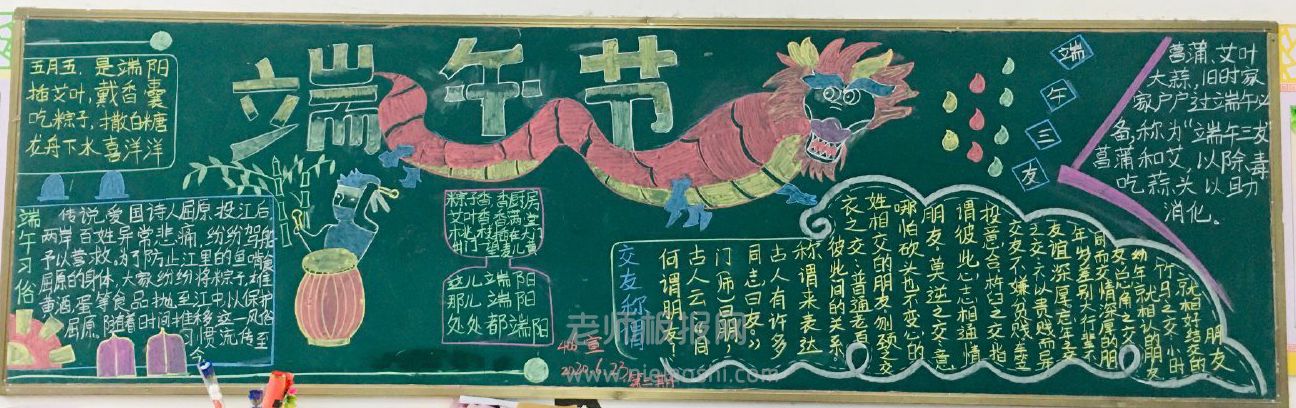 端午节
五月五，是端阳
插艾叶，戴香囊
吃粽子，撒白糖
龙舟下水喜洋洋
端午习俗
传说，爱国诗人屈原投江后，
两岸百姓异常悲痛，纷纷驾船
予以营救，为了防止江里的鱼啃食
屈原的身体，大家纷纷将粽子、雄
黄酒、蛋等食品抛至江中，以保护
屈原，随着时间推移，这一风俗
习惯流传至
今
粽子香，香厨房
艾叶香，香满堂
桃枝插在大门
出门一望麦儿
这儿端阳
那儿端阳
处处都端阳
交友称谓
何谓朋友？
古人云“同
门（师）曰朋，
同志曰友”
古人有许多
称谓来表达
彼此间的关系
衣之交：普通老百
姓相交的朋友，刎颈之交
哪怕砍头也不变心的
朋友，莫逆之交：意
谓彼此心志相通，情
投意合，杵臼之交：指
交友不嫌贫贱，
之交：不以贵贱而异
友谊深厚，忘年之交：
年龄差别大，行辈不
同而交情深厚的朋
友，总角之交：
幼年就相认的朋友
竹马之交：小时
就相好结交的
朋友
端午三友
菖蒲、艾叶
大蒜，旧时家
家户户过端午必
备，称为“端午三友”
菖蒲和艾，以除毒
吃蒜头以助
消化。
老师板报网
2020.6.23
第一期